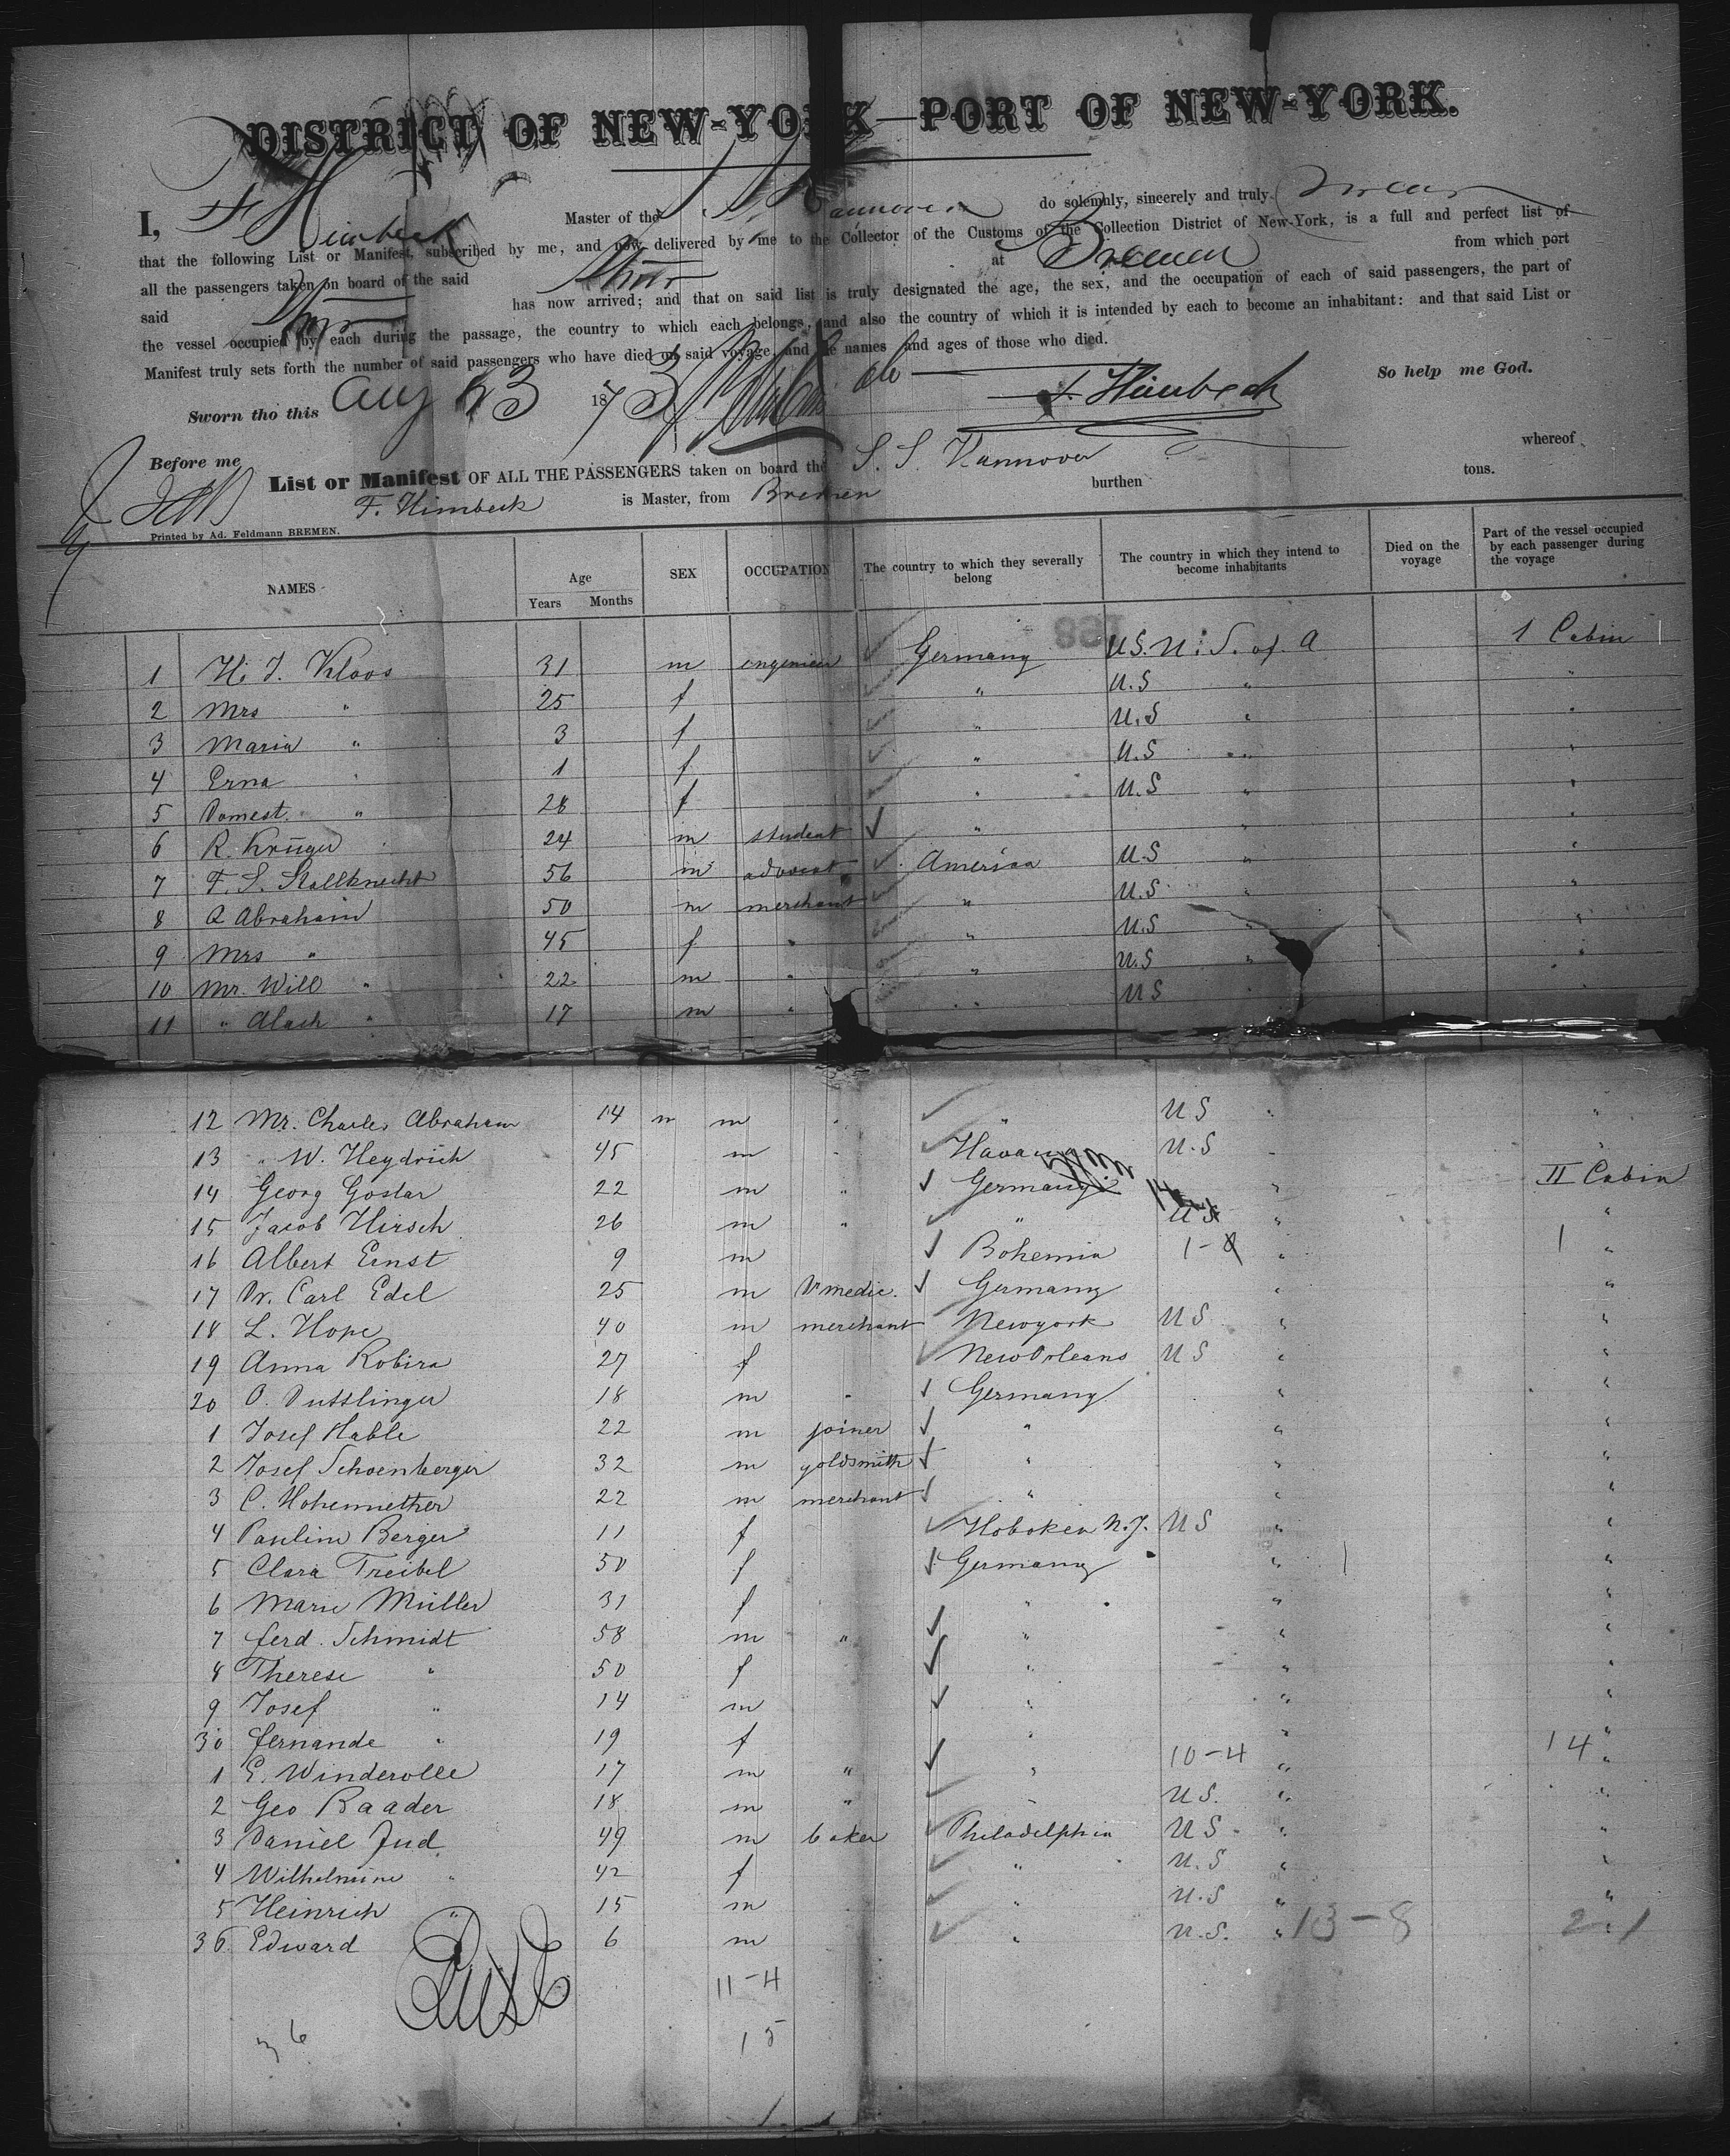 DISTRICT OF NEW-YORK—PORT OF NEW-YORK.
I, F Himbeck Master of the S. S. Hannover do solemnly, sincerely and truly swear
that the following List or Manifest, subscribed by me, and now delivered by me to the Collector of the Customs of the Collection District of New-York, is a full and perfect list of
all the passengers taken on board of the said Ship at Bremen from which port
said Ship has now arrived; and that on said list is truly designated the age, the sex, and the occupation of each of said passengers, the part of
the vessel occupied by each during the passage, the country to which each belongs, and also the country of which it is intended by each to become an inhabitant: and that said List or
Manifest truly sets forth the number of said passengers who have died on said voyage, and the names and ages of those who died.
So help me God.
Sworn tho this Aug 23 1873 F. Himbeck
Before me
List or Manifest OF ALL THE PASSENGERS taken on board the S. S. Hannover whereof
F. Himbeck is Master, from Bremen burthen tons.
Printed by Ad. Feldmann BREMEN.
NAMES Age Years Months SEX OCCUPATION The country to which they severally belong The country in which they intend to become inhabitants Died on the voyage Part of the vessel occupied by each passenger during the voyage
1 H. J. Kloos 31 m engenieur Germany U.S. U. S. of. A 1 Cabin
2 Mrs " 25 f " U.S " "
3 Maria " 3 f " U.S " "
4 Erna " 1 f " U.S " "
5 Domest. " 28 f " U.S " "
6 R. Krüger 24 m student " " "
7 F. S. Stallknecht 56 m advocat America U.S " "
8 A Abraham 50 m merchant " U.S " "
9 Mrs " 45 f " " U.S " "
10 Mr. Will " 22 m " " U.S " "
11 " Alach " 17 m " " U S " "
12 Mr. Charles Abraham 14 m m " " U S " "
13 " W. Heydrich 45 m " Havana U.S " "
14 Georg Goslar 22 m " Germany " II Cabin
15 Jacob Hirsch 26 m " " U S " "
16 Albert Ernst 9 m Bohemia " 1 "
17 Dr. Carl Edel 25 m Dr medic. Germany " "
18 L. Hope 40 m merchant Newyork U S " "
19 Anna Robira 27 f New Orleans U S " "
20 O. Duttlinger 18 m " Germany " "
1 Josef Hable 22 m joiner " " "
2 Josef Schoenberger 32 m goldsmith " " "
3 C. Hohennether 22 m merchant " " "
4 Pauline Berger 11 f Hoboken N.J. U S " "
5 Clara Treibel 50 f Germany " "
6 Marie Müller 31 f " " "
7 ferd. Schmidt 58 m " " " "
8 Therese " 50 f " " "
9 Josef " 14 m " " "
30 fernande " 19 f " " "
1 E. Winderolle 17 m " " 10-4 " 14 "
2 Geo Raader 18 m " " U S. " "
3 Daniel Jud 49 m baker Philadelphia U S " "
4 Wilhelmine " 42 f " U.S " "
5 Heinrich " 15 m " U.S " "
36 Edward 6 m " U.S. " 13-8 2.1
11-4
36 15